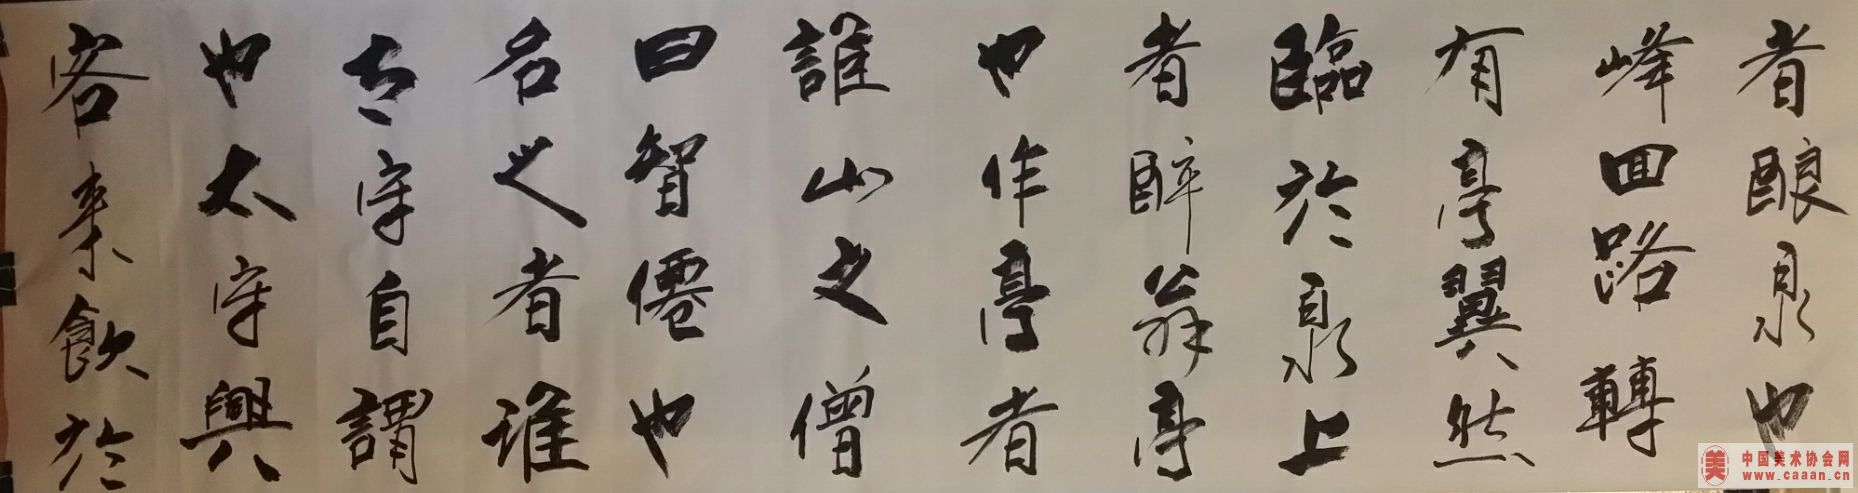 者釀泉也
峰回路轉
有亭翼然
臨於泉上
者醉翁亭
也作亭者
誰山之僧
曰智僊也
名之者誰
太守自謂
也太守與
客來飲於
中国美术协会网
www.caaan.cn